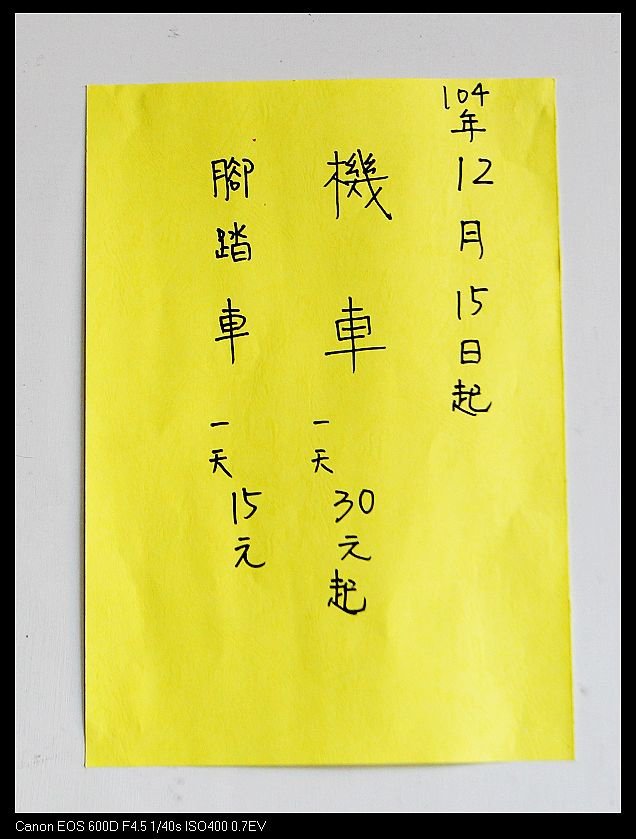 104年12月15日起
機車一天30元起
腳踏車一天15元
Canon EOS 600D F4.5 1/40s ISO400 0.7EV